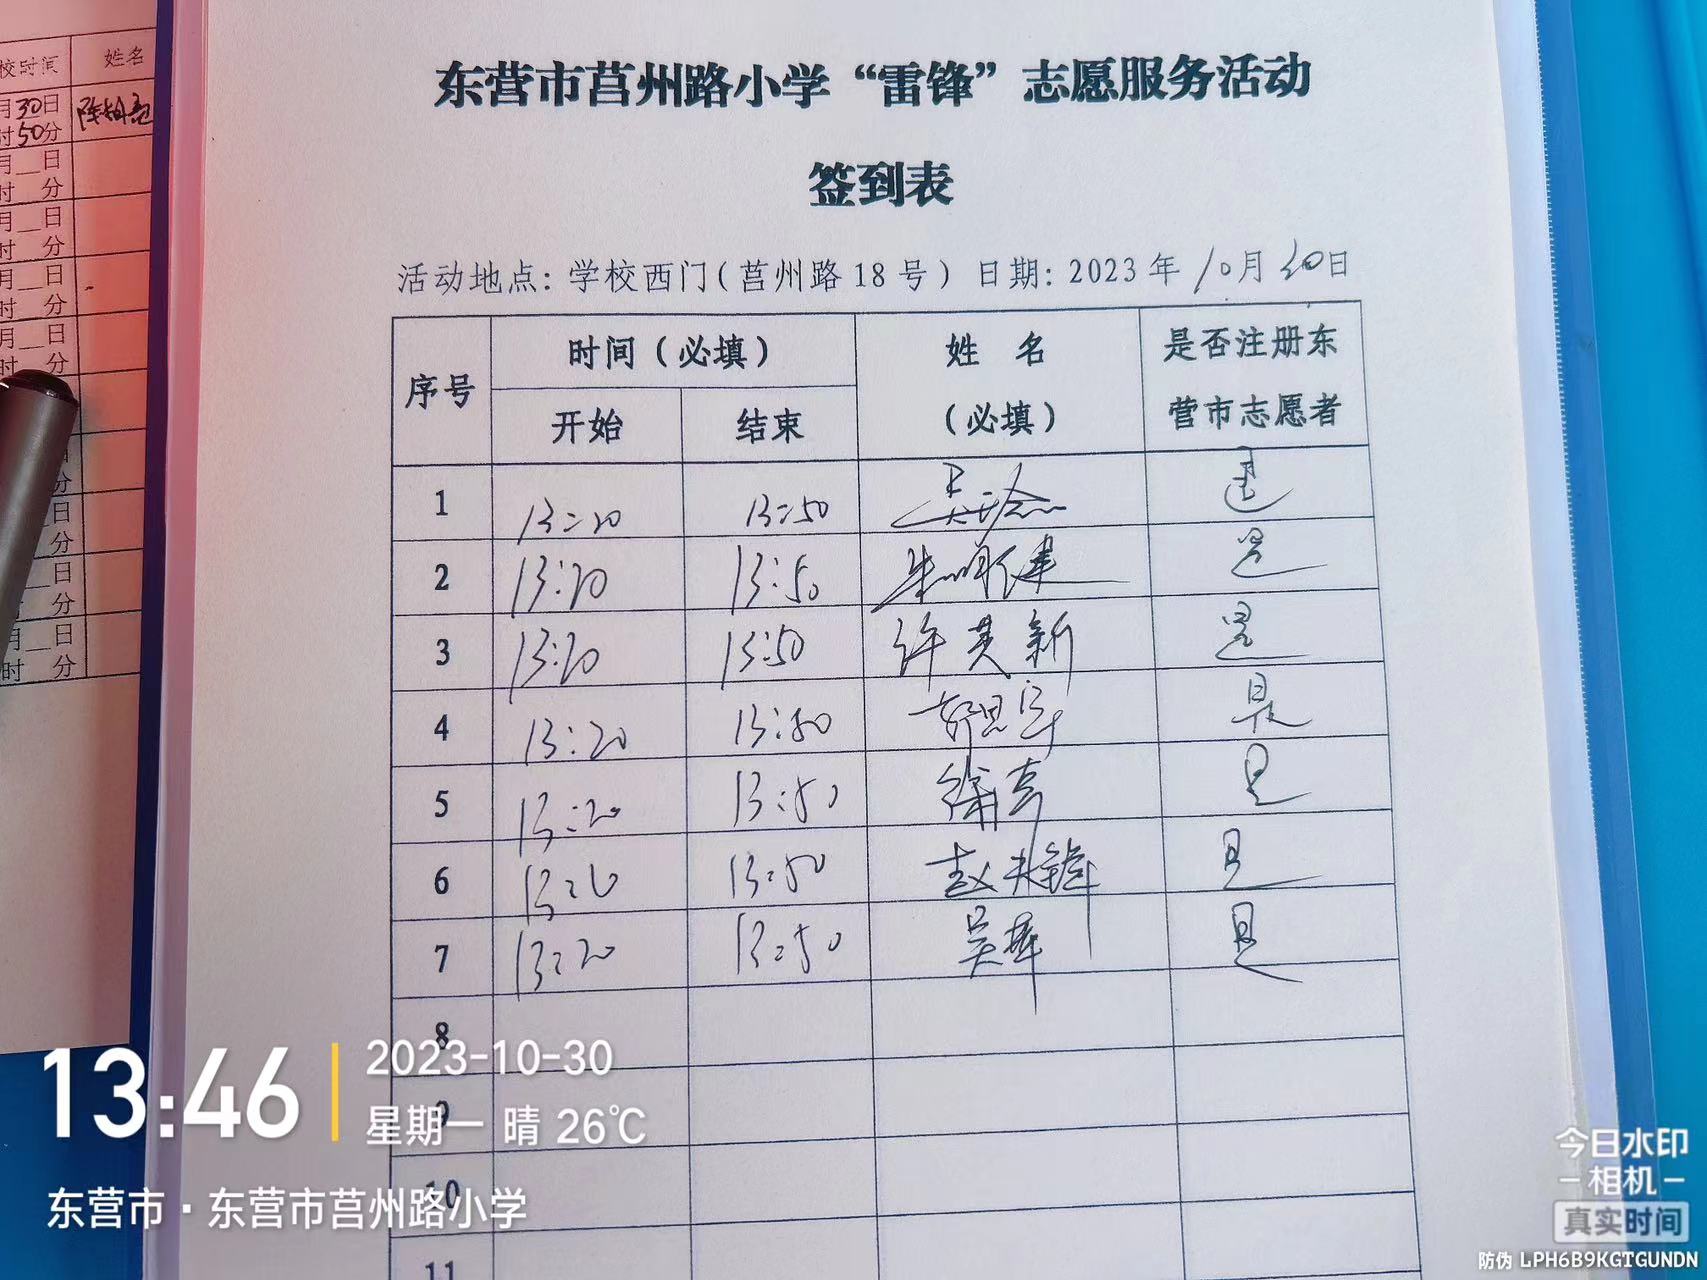 校时间 姓名
月30日
时50分
月__日
时 分
月__日
时 分
月__日
时 分
月__日
时 分
日
分
日
分
月__日
时 分
东营市莒州路小学“雷锋”志愿服务活动
签到表
活动地点：学校西门（莒州路18号） 日期：2023年10月30日
序号 时间（必填） 姓 名（必填） 是否注册东营市志愿者
开始 结束
1 13:20 13:50 是
2 13:20 13:50 朱明健 是
3 13:20 13:50 许英新 是
4 13:20 13:50 是
5 13:20 13:50 徐亮 是
6 13:20 13:50 赵夫锋 是
7 13:20 13:50 吴华 是
8
9
10
11
13:46
2023-10-30
星期一 晴 26℃
东营市·东营市莒州路小学
今日水印
相机
真实时间
防伪 LPH6B9KGTGUNDN